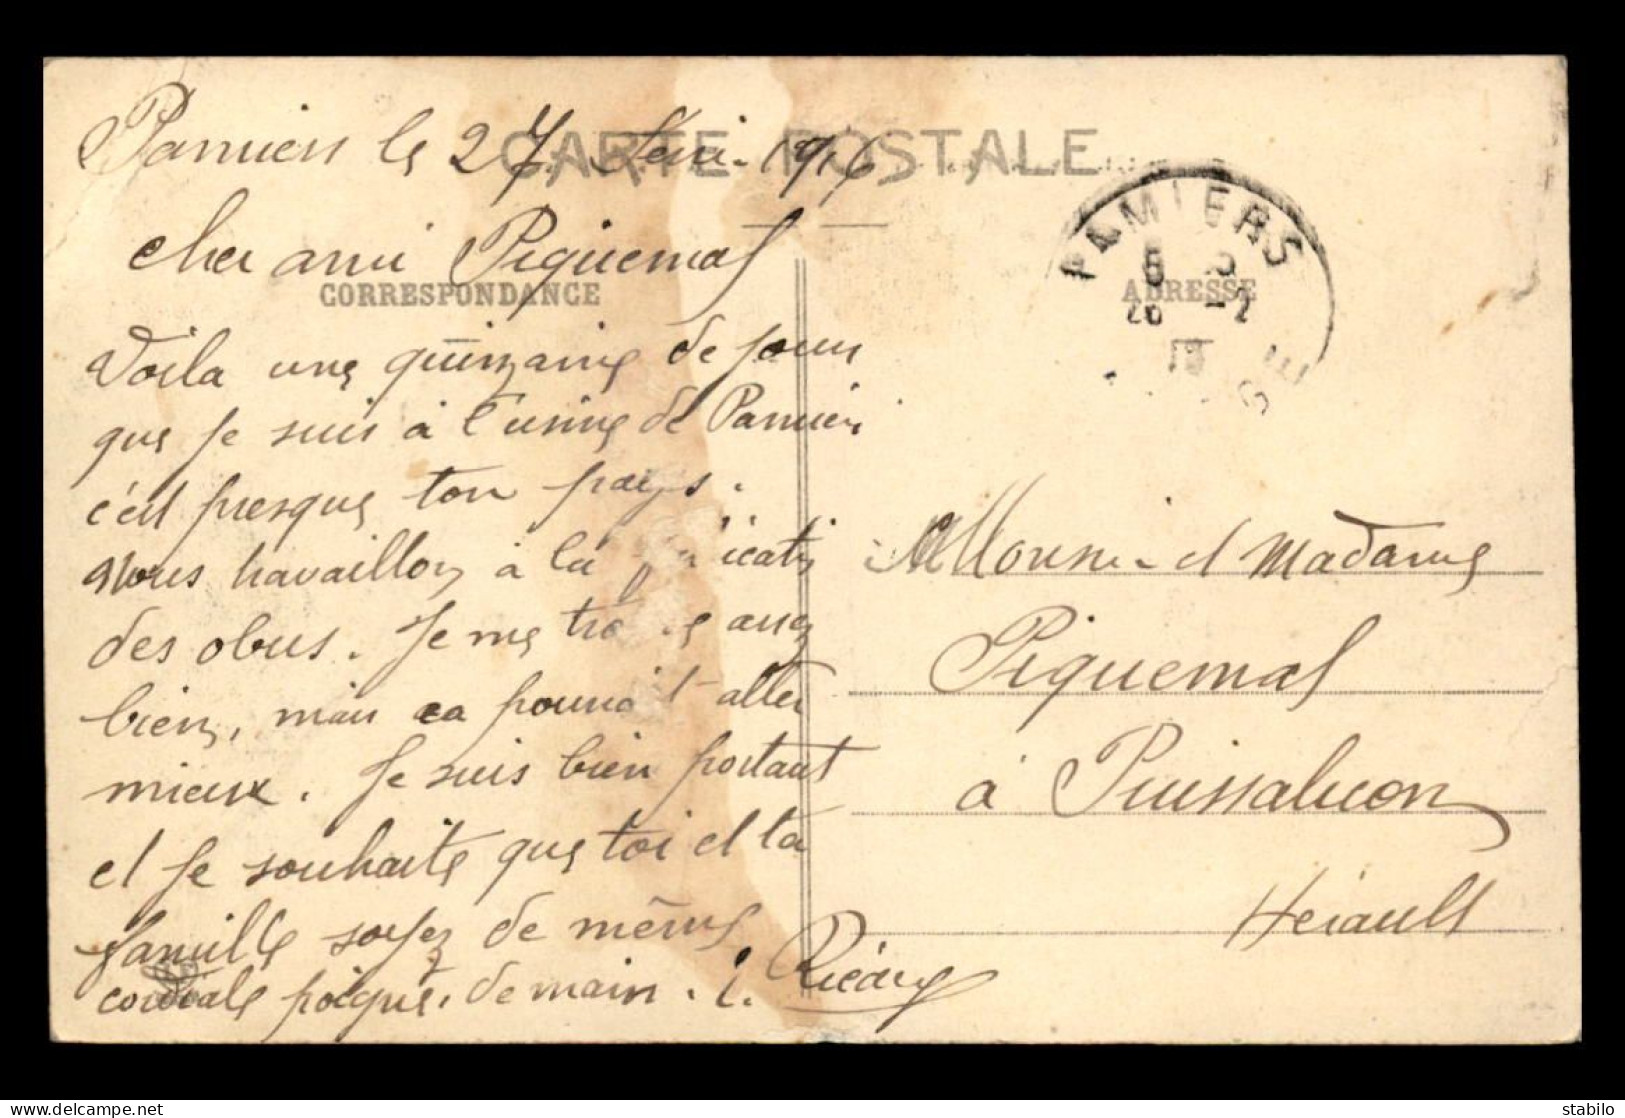 CARTE POSTALE
Pamiers le 27 Févr. 1916
cher ami Piquemal
CORRESPONDANCE
Voila une quinzaine de jours
que je suis à l'usine de Pamiers
c'est presque ton pays.
nous travaillons à la
des obus. Je me trouve assez
bien, mais ca pourrait aller
mieux. Je suis bien portant
et je souhaite que toi et ta
famille soyez de même
cordiale poigné. de main.
PAMIERS
ADRESSE
Monsieur et Madame
Piquemal
à Puissalicon
Hérault
stabilo